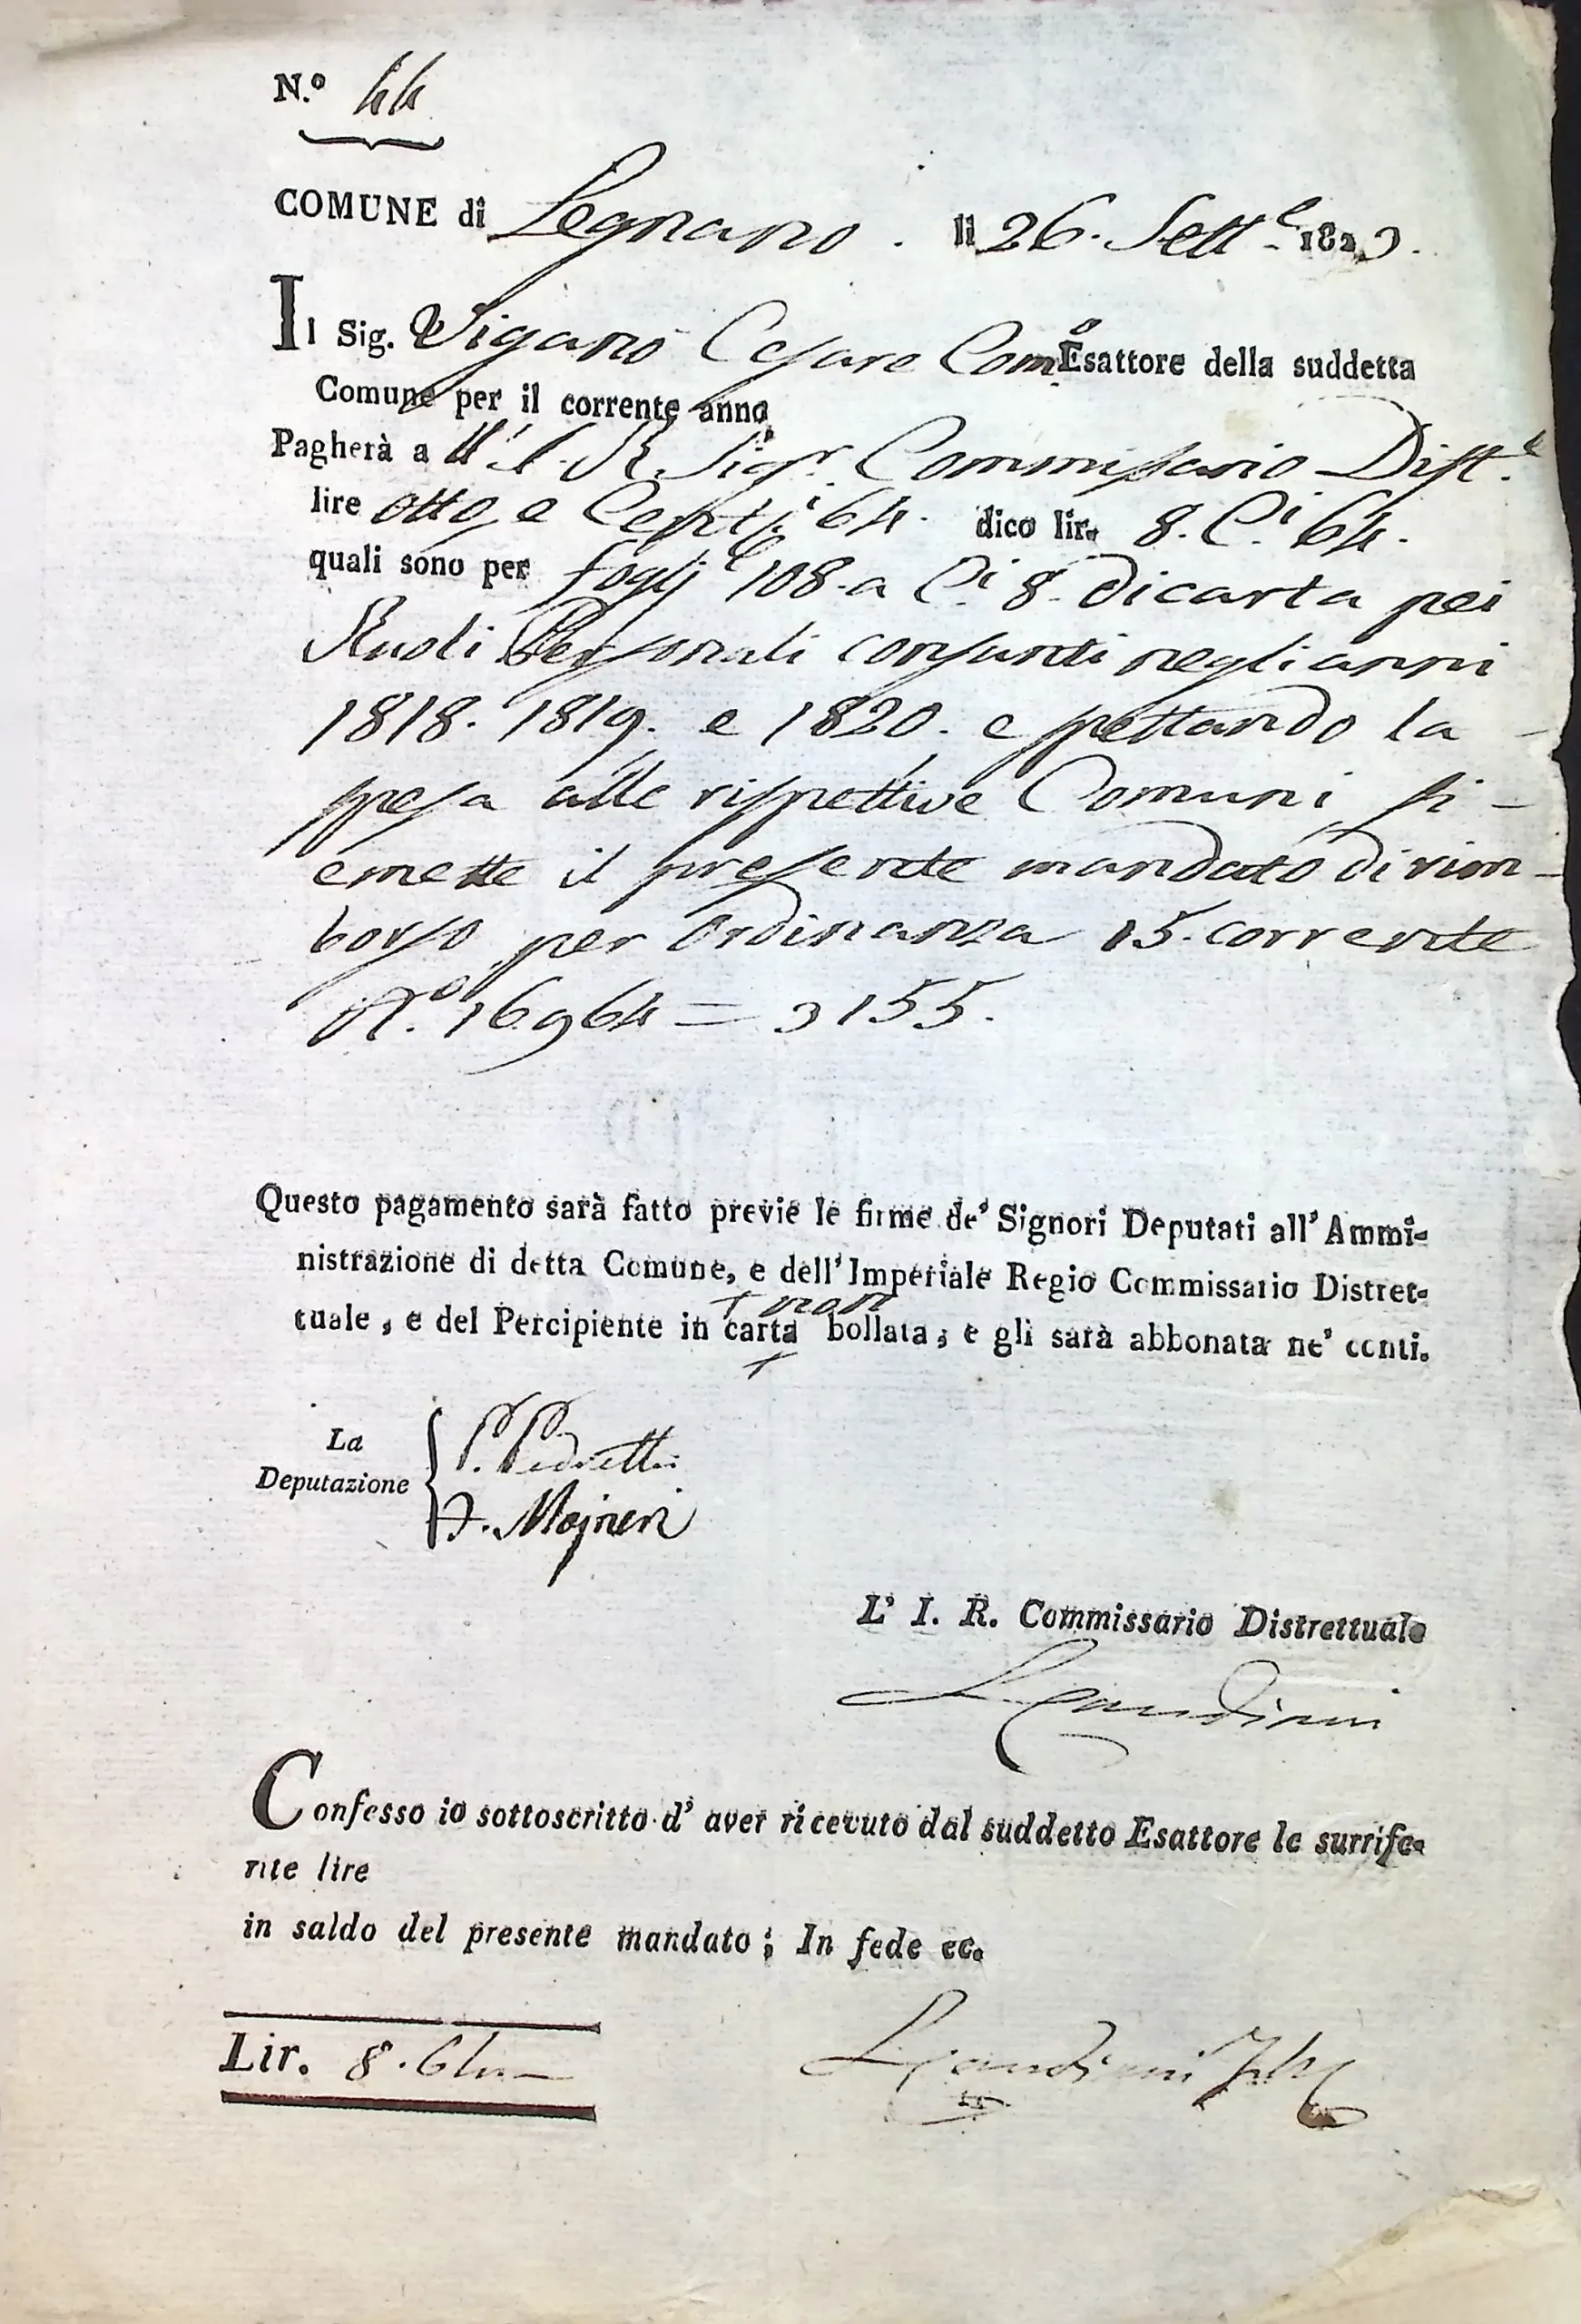 N.º 44
COMUNE di Legnano. li 26. Sett.e 1823.
Il Sig. Viganò Cesare Com.e Esattore della suddetta
Comune per il corrente anno
Pagherà all' I. R. Sigr. Commissario Dist.e
lire otto, e Cent.i 64. dico lir. 8. C.i 64.
quali sono per foglj 108. a C.i 8. di carta pei
Ruoli Personali consunti negli anni
1818. 1819. e 1820. e spettando la
spesa alle rispettive Comuni si
emette il presente mandato di rim-
borso per Ordinanza 15. corrente
N.º 16964 = 3155.
Questo pagamento sarà fatto previe le firme de' Signori Deputati all' Ammi-
nistrazione di detta Comune, e dell' Imperiale Regio Commissario Distret-
+ non
tuale, e del Percipiente in carta bollata; e gli sarà abbonata ne' conti.
+
La
Deputazione
P. Pedretti
L' I. R. Commissario Distrettuale
Confesso io sottoscritto d' aver ricevuto dal suddetto Esattore le surrife-
rite lire
in saldo del presente mandato; In fede ec.
Lir. 8. 64.